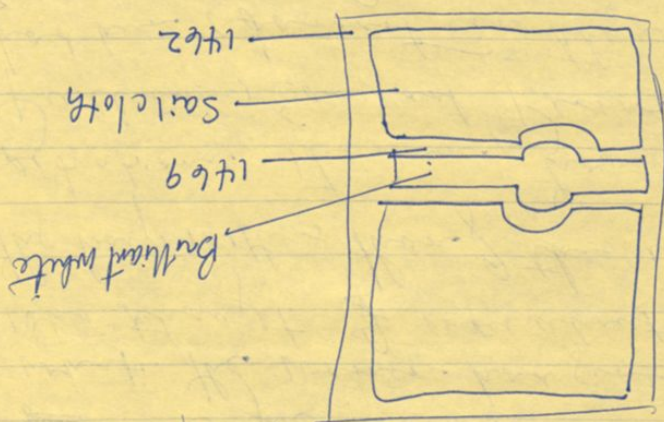 Brilliant white
1469
Sailcloth
1462